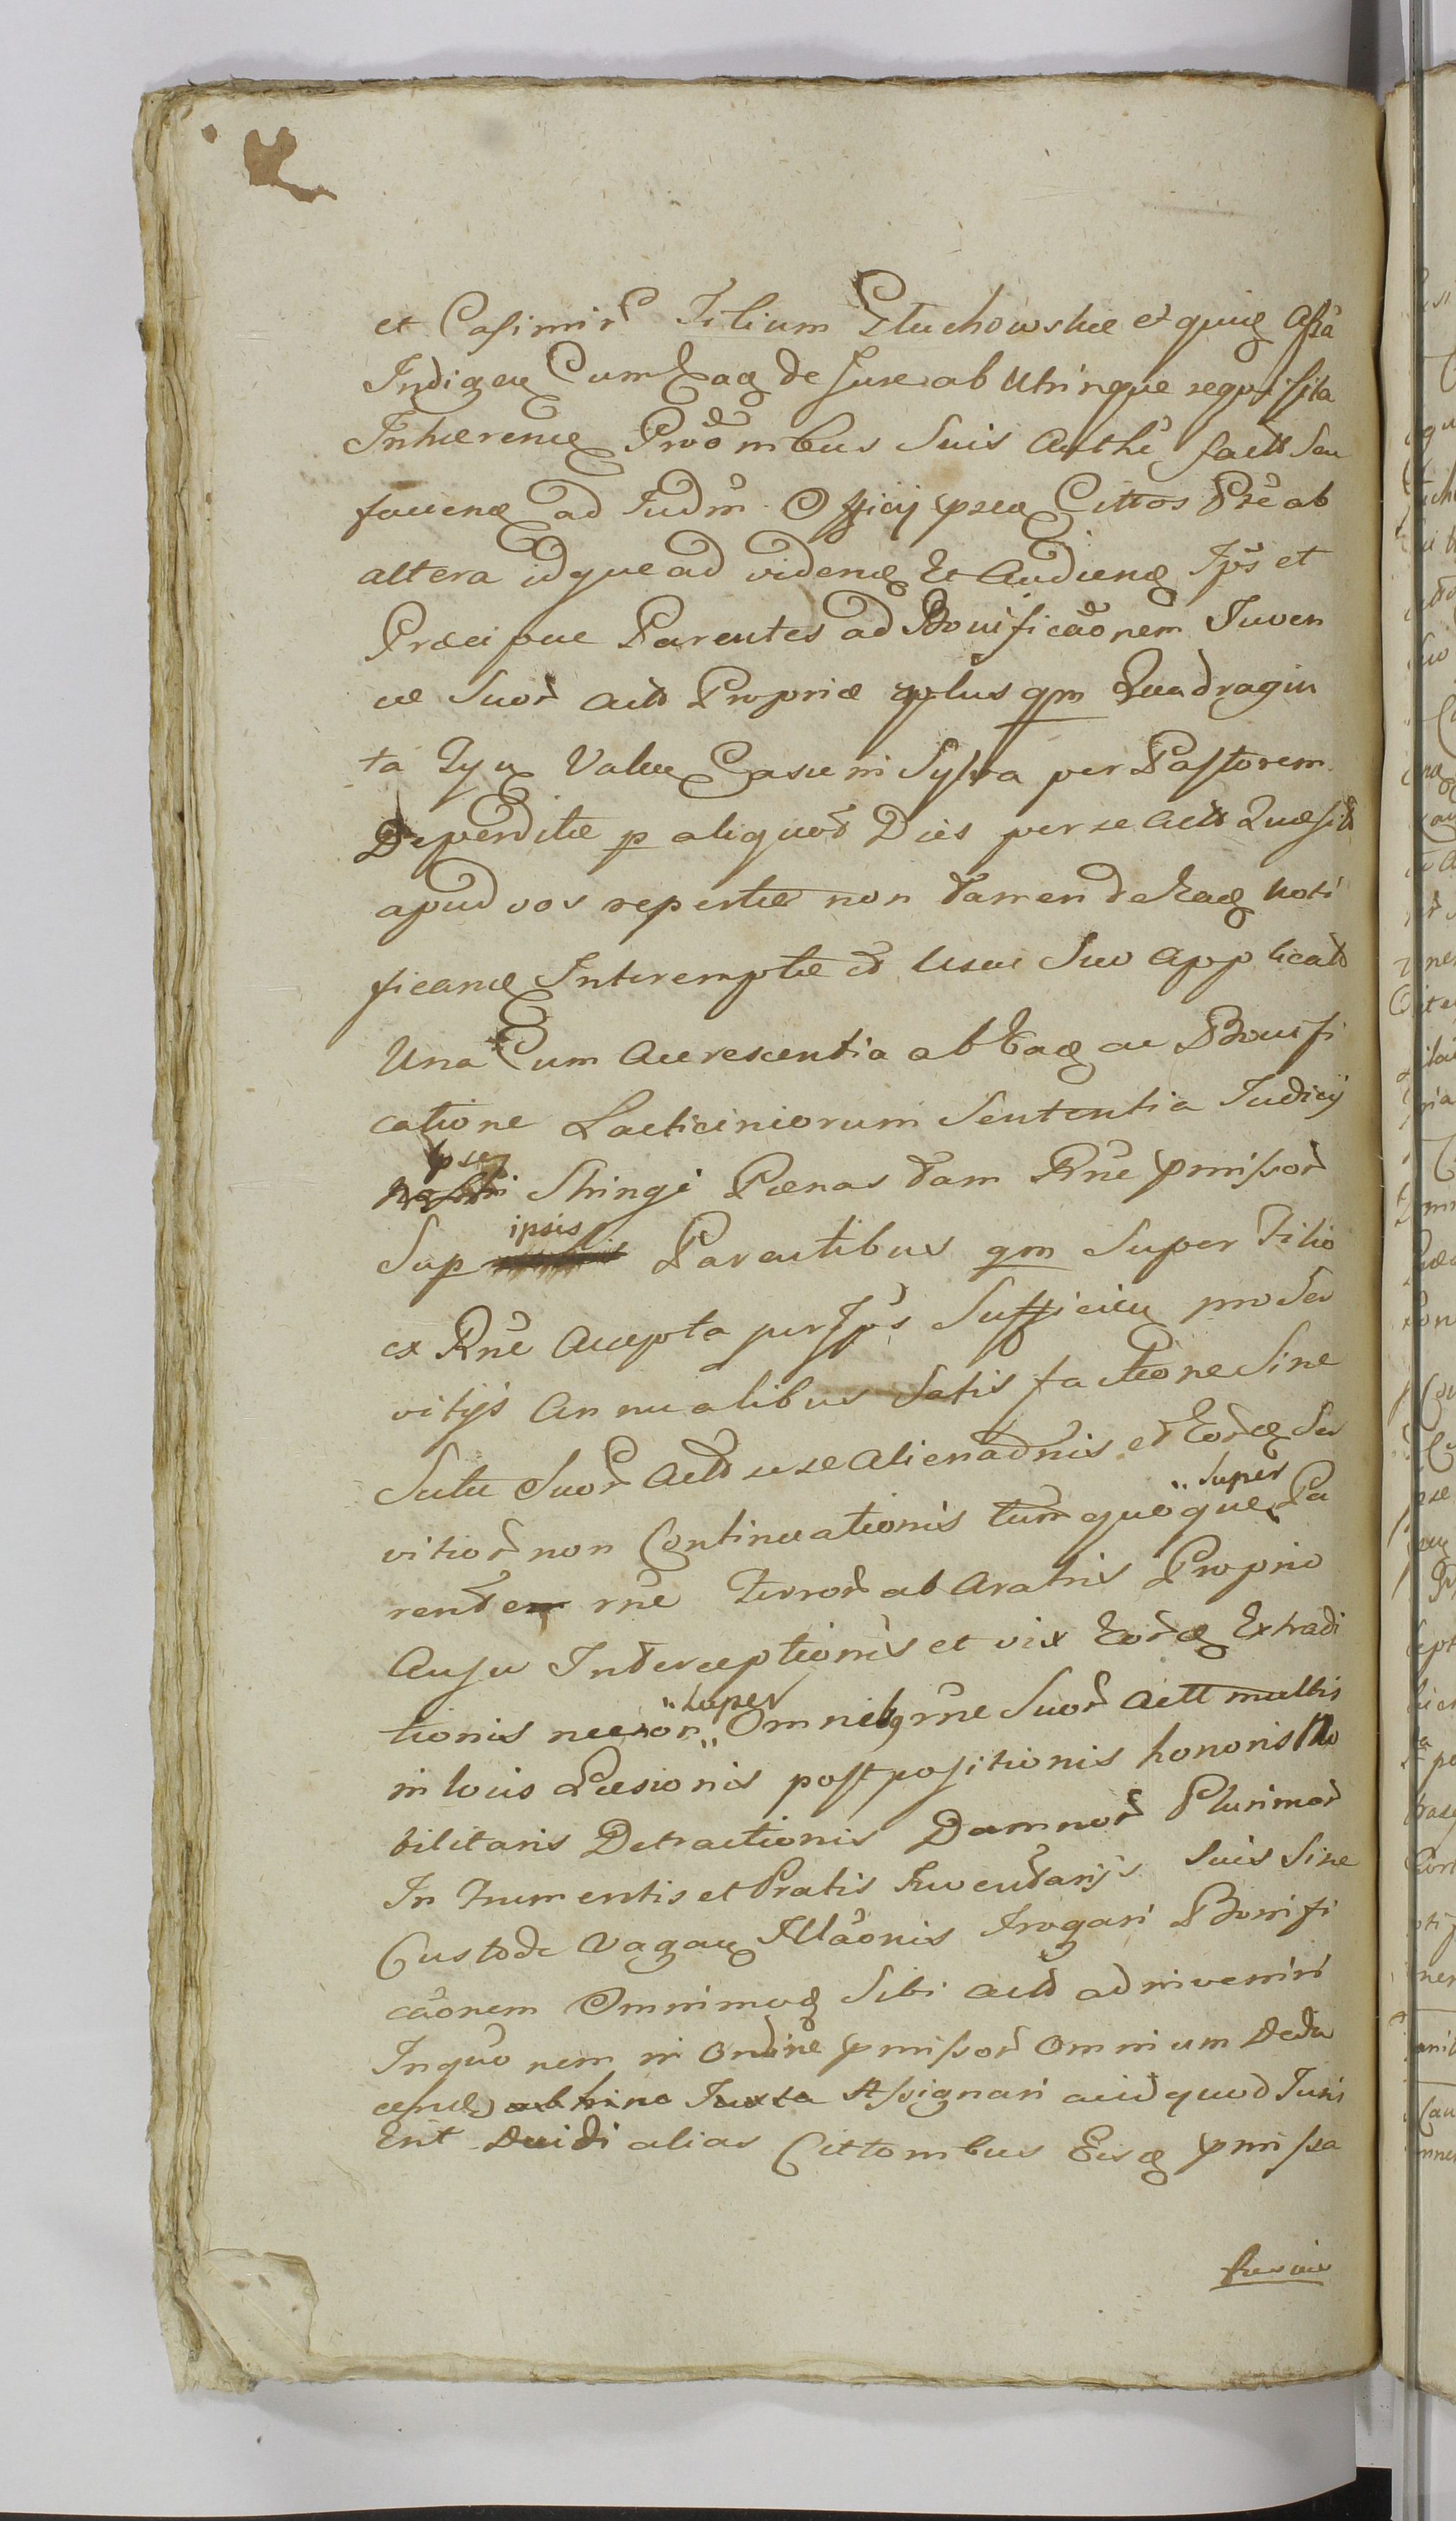 et Casimir Filium Głuchowskie et quing
Indigen Cum de Jure ab Utrinque requisita
Inhaeren Suis Authe seu
faven ad Judm Officij psen Cittos Pte ab
altera idque ad viden Et Audien Ips et
Praecipue Parentes ad Bonificaonem Juven
cae Suor Act Propriae plus qm Quadragin
ta Tyn Valen Casu in Sylva per Pastorem
Deperditae p aliquod Dies per se Act Quaesit
apud vos repertae non tamen de Eaq noti
fican Interemptae et Usui Suo applicat
Una Cum Accrescentia ab Eaq ac Bonifi
catione Lacticiniorum Sententia Judicij
psen
Stringi Paenas tam Rne pmissor
ipsis
Sup Parentibus qm Super Filio
ex Rne Accepta per Ips Sufficien pro Ser
vitijs Annualibus Satisfactione Sine
Scitu Suor Act a se Alienaonis et Eordq Ser
super
vitior non Continuationis tum quoque Pa
rent rne Terror ab Aratris Proprio
Ausu Interceptionis et vix Eordq Extradi
super
tionis necnon Omnibq rne Suor Act multis
in locis Laesionis postpositionis honoris No
bilitaris Detractionis Damnor Plurimor
In Frumentis et Pratis Suis Sine
Custode Vagan Illaonis Irrogari Bonifi
caonem Omnimodq Sibi Act adinveniri
In quo nem in Ordine pmissor Omnium Dedu
cend ab hinc Juxta Assignari aliud quod Juris
Erit Decidi alias Cittonibus Eisdq pmissa